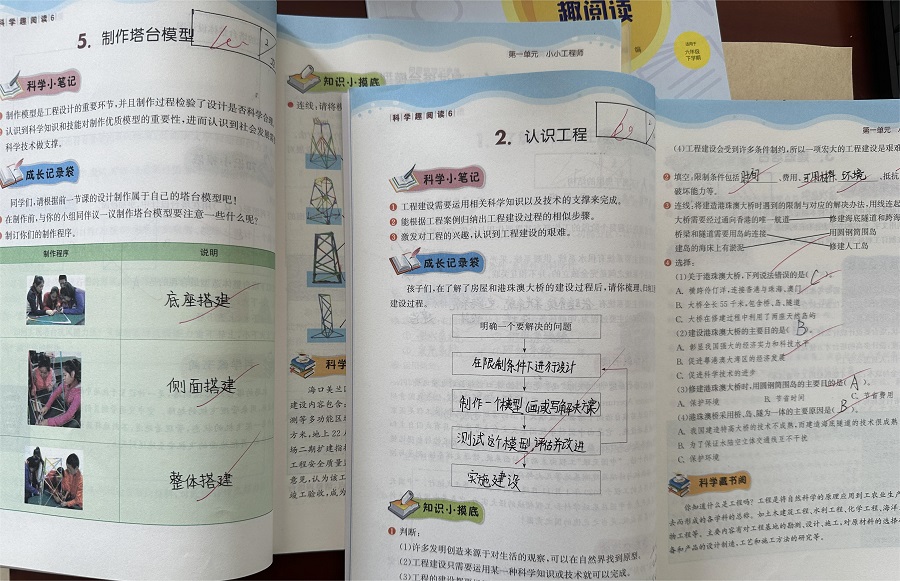 科学趣阅读6
5. 制作塔台模型
科学小笔记
制作模型是工程设计的重要环节,并且制作过程检验了设计是否科学合理
认识到科学知识和技能对制作优质模型的重要性,进而认识到社会发展
科学技术做支撑。
成长记录袋
同学们,请根据前一节课的设计制作属于自己的塔台模型吧!
在制作前,与你的小组同伴议一议制作塔台模型要注意一些什么呢?
制订你们的制作程序。
制作程序 说明
底座搭建
侧面搭建
整体搭建
趣阅读
适用于
六年级
下学期
第一单元 小小工程师
知识小摸底
连线,请将模
科学
海口美兰区
建设内容包含:
测等多功能区
方米,地上22
场二期扩建指
工程安全质量
意见,认为该工
竣工验收,成为
科学趣阅读6
2. 认识工程
科学小笔记
1 工程建设需要运用相关科学知识以及技术的支撑来完成。
2 能根据工程案例归纳出工程建设过程的相似步骤。
3 激发对工程的兴趣,认识到工程建设的艰难。
成长记录袋
孩子们,在了解了房屋和港珠澳大桥的建设过程后,请你梳理
建设过程。
明确一个要解决的问题
在限制条件下进行设计
制作一个模型(画或写解决方案)
测试这个模型,评估并改进
实施建设
知识小摸底
1 判断:
(1)许多发明创造来源于对生活的观察,可以在自然界找到原型。
(2)工程建设只需要运用某一种科学知识或技术就可以完成。
第一单元
(4)工程建设会受到许多条件制约,所以一项宏大的工程建设是艰难
2 填空,限制条件包括 时间 、费用、可用材料、环境 、抵抗
破坏能力等。
3 连线,将建造港珠澳大桥时遇到的限制与对应的解决办法,用线连起
大桥需要经过通向香港的唯一航道 修建海底隧道和跨海
桥梁和隧道需要用岛屿连接 用圆钢筒围岛
建岛的海床上有淤泥 修建人工岛
4 选择:
(1)关于港珠澳大桥,下列说法错误的是( C )。
A. 横跨伶仃洋,连接香港与珠海、澳门
B. 大桥全长55千米,包含桥、岛、隧道
C. 大桥在修建过程中利用了两座天然岛屿
(2)建设港珠澳大桥的主要目的是( B )。
A. 彰显我国强大的经济实力和科技水平
B. 促进粤港澳大湾区的经济发展
C. 促进科学技术的进步
(3)修建港珠澳大桥时,用圆钢筒围岛的主要目的是( A )。
A. 保护环境 B. 节省时间 C. 节省费用
(4)港珠澳桥采用桥、岛、隧为一体的主要原因是( B )。
A. 我国建造特高大桥的技术不成熟,而建造海底隧道的技术很成熟
B. 为了保证水陆空立体交通线互不干扰
C. 保护环境
科学藏书阁
你知道什么是工程吗?工程是将自然科学的原理应用到工农业生产
去而形成的各学科的总称。如土木建筑工程、水利工程、化学工程、海洋
物工程等。主要内容有对工程基地的勘测、设计、施工,对原材料的选择
备和产品的设计制造,工艺和施工方法的研究等。